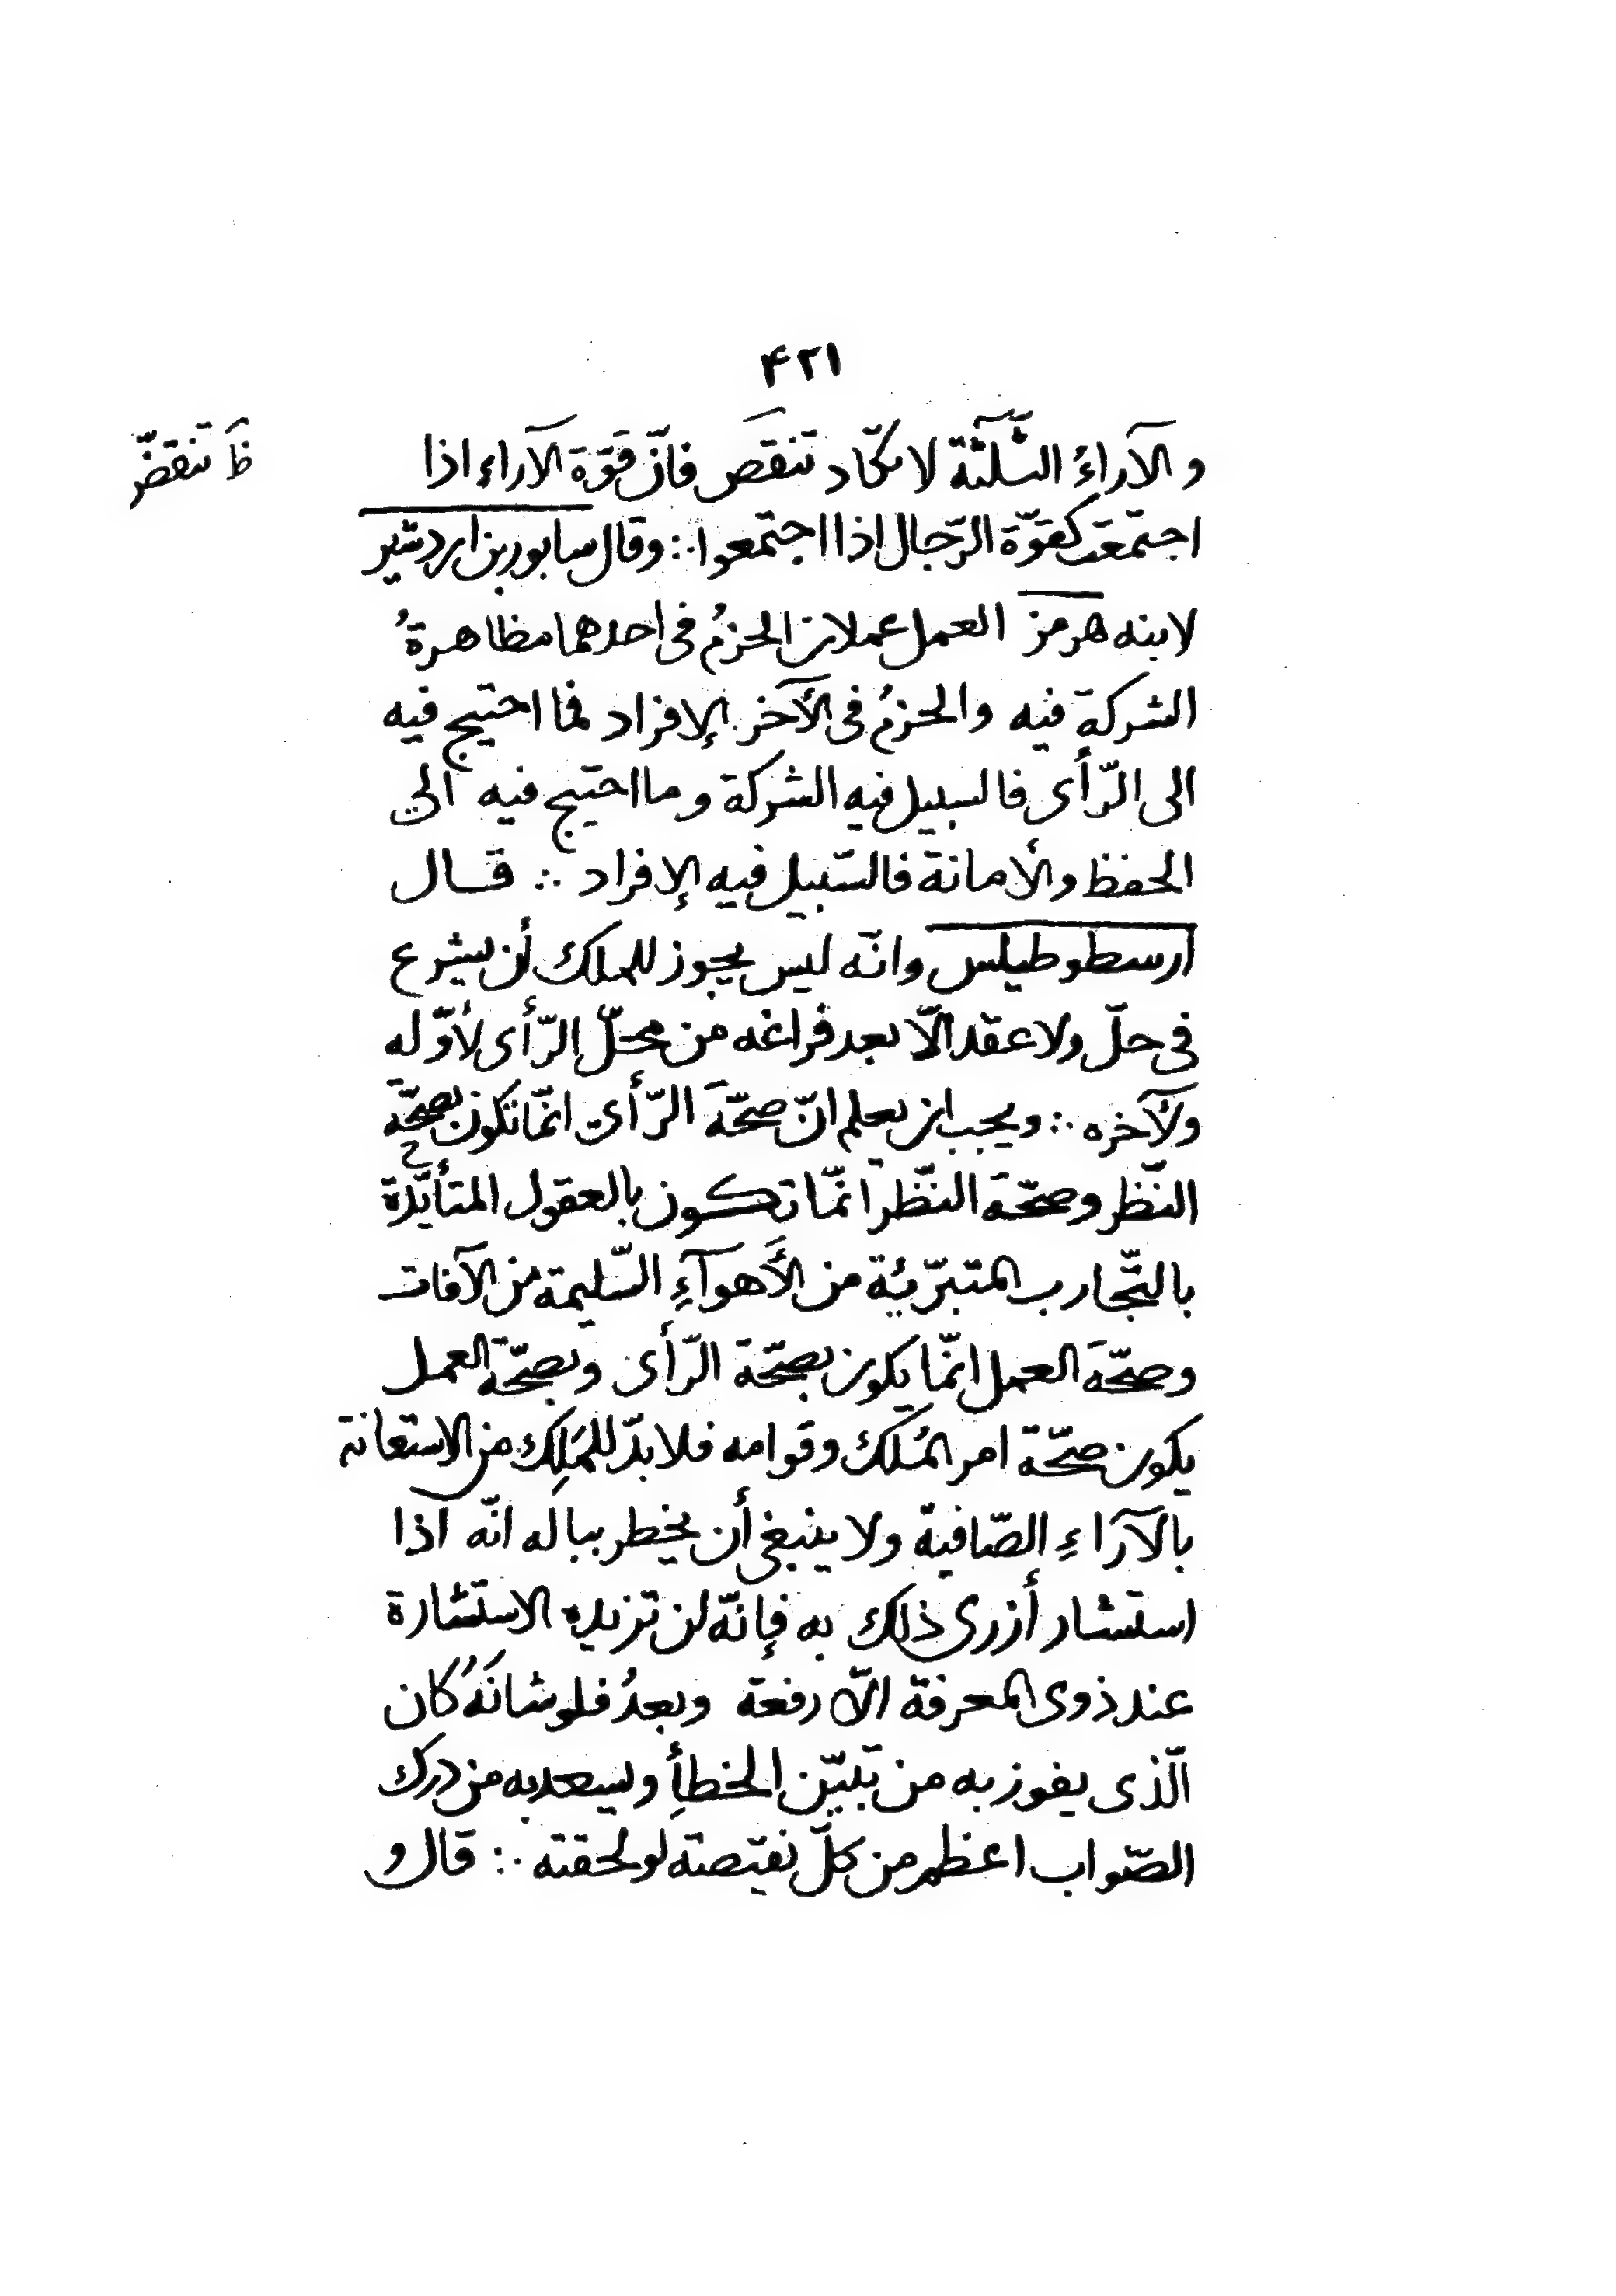 ۴۲۱
و الآراءُ الثّلثة لا تكاد تنقَص فانّ قوّة الآراء اذا
ظ تنقضّ
اجتمعَت كقوّة الرّجال اذا اجتمعوا ∴ وقال سابور بن اردشير
لابنه هرمز العمل عملان الحزمُ فى احدهما مظاهرةُ
الشركة فيه والحزمُ فى الآخر الإفراد فما احتيج فيه
الى الرّأى فالسبيل فيه الشركة وما احتيج فيه الى
الحفظ والأمانة فالسّبيل فيه الإفراد ∴ قــال
ارسطوطيلس وانّه ليس يجوز للملك أن يشرع
فى حلّ ولا عقد الّا بعد فراغه من محلّ الرّأى لأوّله
ولآخره ∴ ويجب ان يعلم انّ صحّة الرّأى انّما تكون بصحّة
النّظر وصحّة النّظر انّما تكون بالعقول المتأيّدة
بالتّجارب المتبرّئة من الأهوآءِ السّليمة من الآفات
وصحّة العمل انّما يكون بصحّة الرّأى وبصحّة العمل
يكون صحّة امر المُلك وقوامه فلا بدّ للمَلِك من الاستعانة
بالآراءِ الصّافية ولا ينبغى أن يخطر بباله انّه اذا
استشار أزرى ذلك به فإنّه لن تزيده الاستشارة
عند ذوى المعرفة الّا رفعة وبعدُ فلو شانَهُ كان
الّذى يفوز به من تبيّن الخطأِ ويسعد به من درك
الصّواب اعظم من كلّ نقيصة لو لحقته ∴ قال و